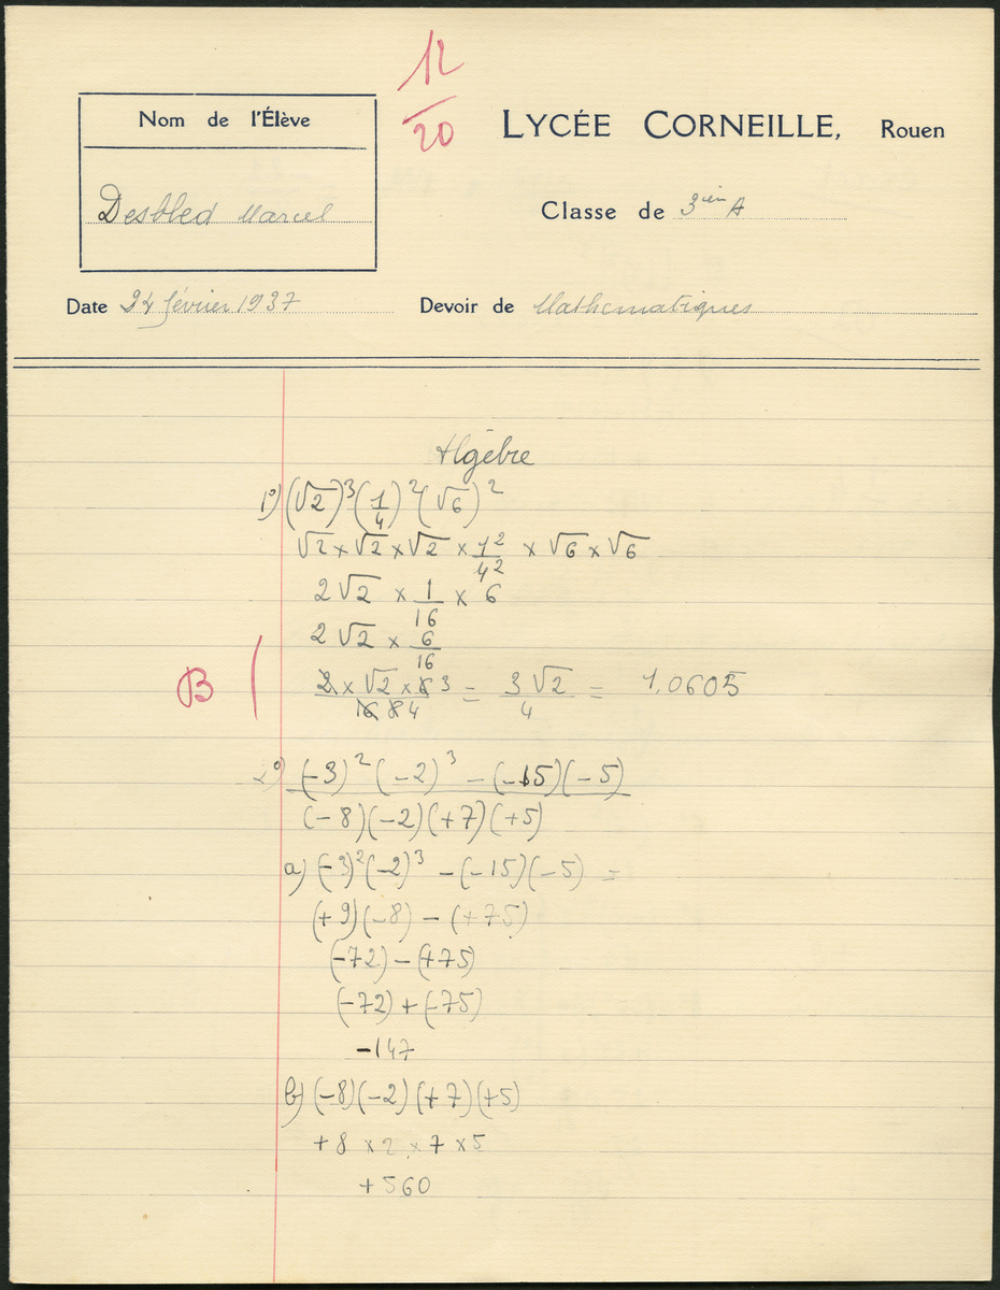 12/20
Nom de l'Élève
LYCÉE CORNEILLE, Rouen
Desbled Marcel
Classe de 3ièm A
Date 24 février 1937 Devoir de Mathematiques
Algèbre
1°) (√2)³(1/4)²(√6)²
√2 × √2 × √2 × 1²/4² × √6 × √6
2√2 × 1/16 × 6
2√2 × 6/16
B
2 × √2 × 6 3 / 16 8 4 = 3√2/4 = 1,0605
2°) (-3)²(-2)³ - (-15)(-5)
(-8)(-2)(+7)(+5)
a) (-3)²(-2)³ - (-15)(-5) =
(+9)(-8) - (+75)
(-72) - (+75)
(-72) + (-75)
-147
b) (-8)(-2)(+7)(+5)
+8 × 2 × 7 × 5
+560